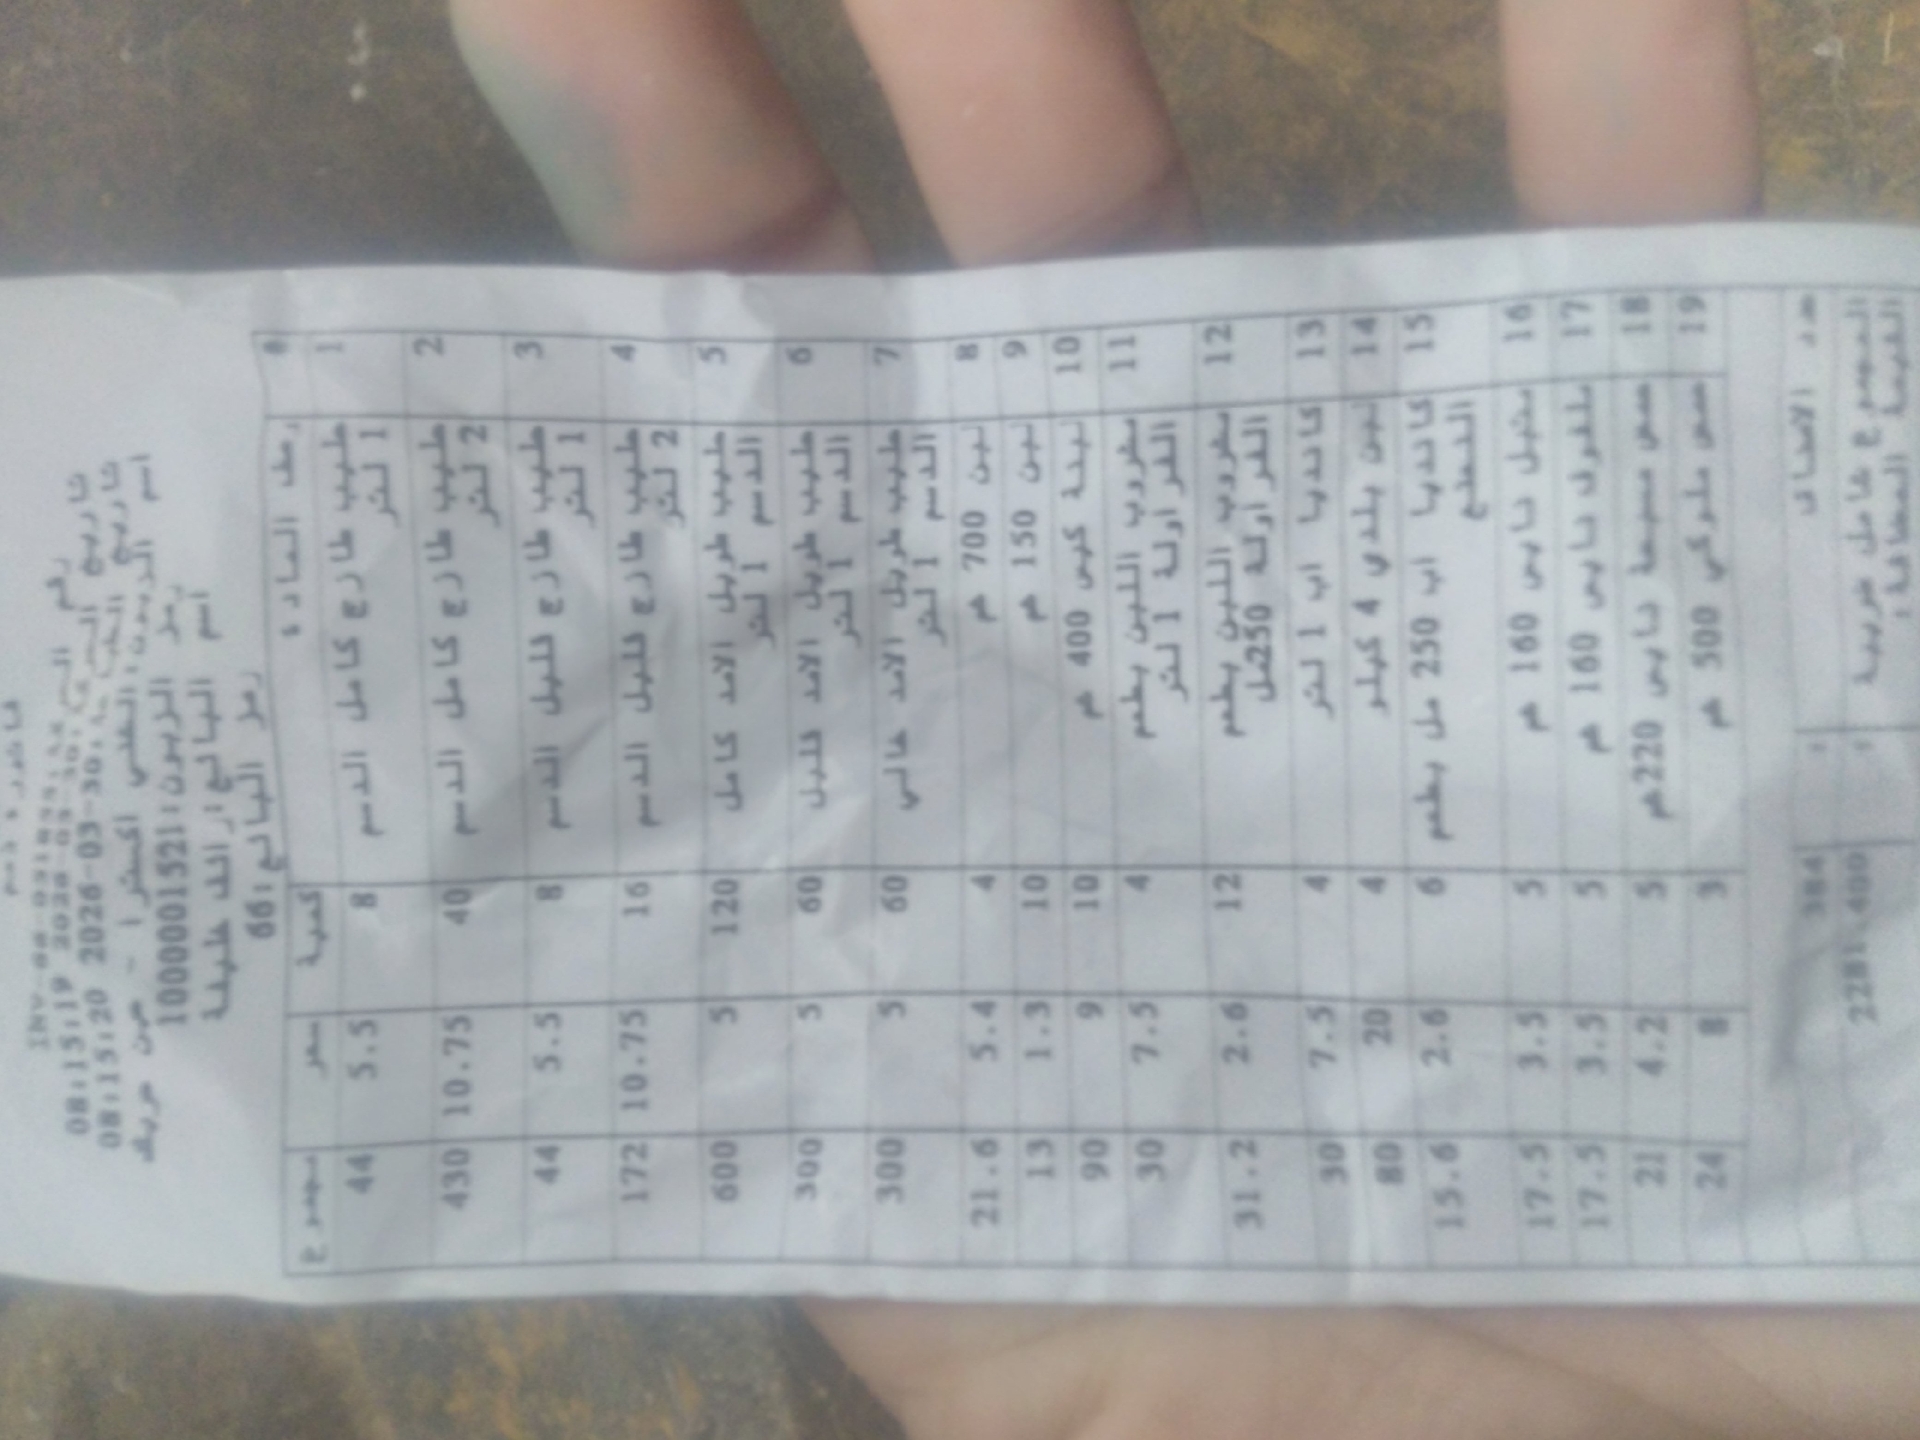 فاتورة
08:15:19 2026-03-30
08:15:20 2026-03-30
اسم الزبون:
رمز الزبون:1000001521
اسم البائع:رائد خليفة
رمز البائع:66
# وصف المادة كمية سعر مجموع
1 حليب طازج كامل الدسم 8 5.5 44
1 لتر
2 حليب طازج كامل الدسم 40 10.75 430
2 لتر
3 حليب طازج قليل الدسم 8 5.5 44
1 لتر
4 حليب طازج قليل الدسم 16 10.75 172
2 لتر
5 حليب طويل الامد كامل 120 5 600
الدسم 1 لتر
6 حليب طويل الامد قليل 60 5 300
الدسم 1 لتر
7 حليب طويل الامد خالي 60 5 300
الدسم 1 لتر
8 لبن 700 غم 4 5.4 21.6
9 لبن 150 غم 10 1.3 13
10 لبنة كيس 400 غم 10 9 90
11 مشروب اللبن بطعم 4 7.5 30
الفراولة 1 لتر
12 مشروب اللبن بطعم 12 2.6 31.2
الفراولة 250مل
13 كانديا اب 1 لتر 4 7.5 30
14 لبن بلدي 4 كيلو 4 20 80
15 كانديا اب 250 مل بطعم 6 2.6 15.6
16 متبل نايس 160 غم 5 3.5 17.5
17 ملفوف نايس 160 غم 5 3.5 17.5
18 حمص مسبحة نايس 220غم 5 4.2 21
19 حمص ملوكي 500 غم 3 8 24
عدد الاصناف : 384
المجموع شامل ضريبة : 2281.400
القيمة المضافة: